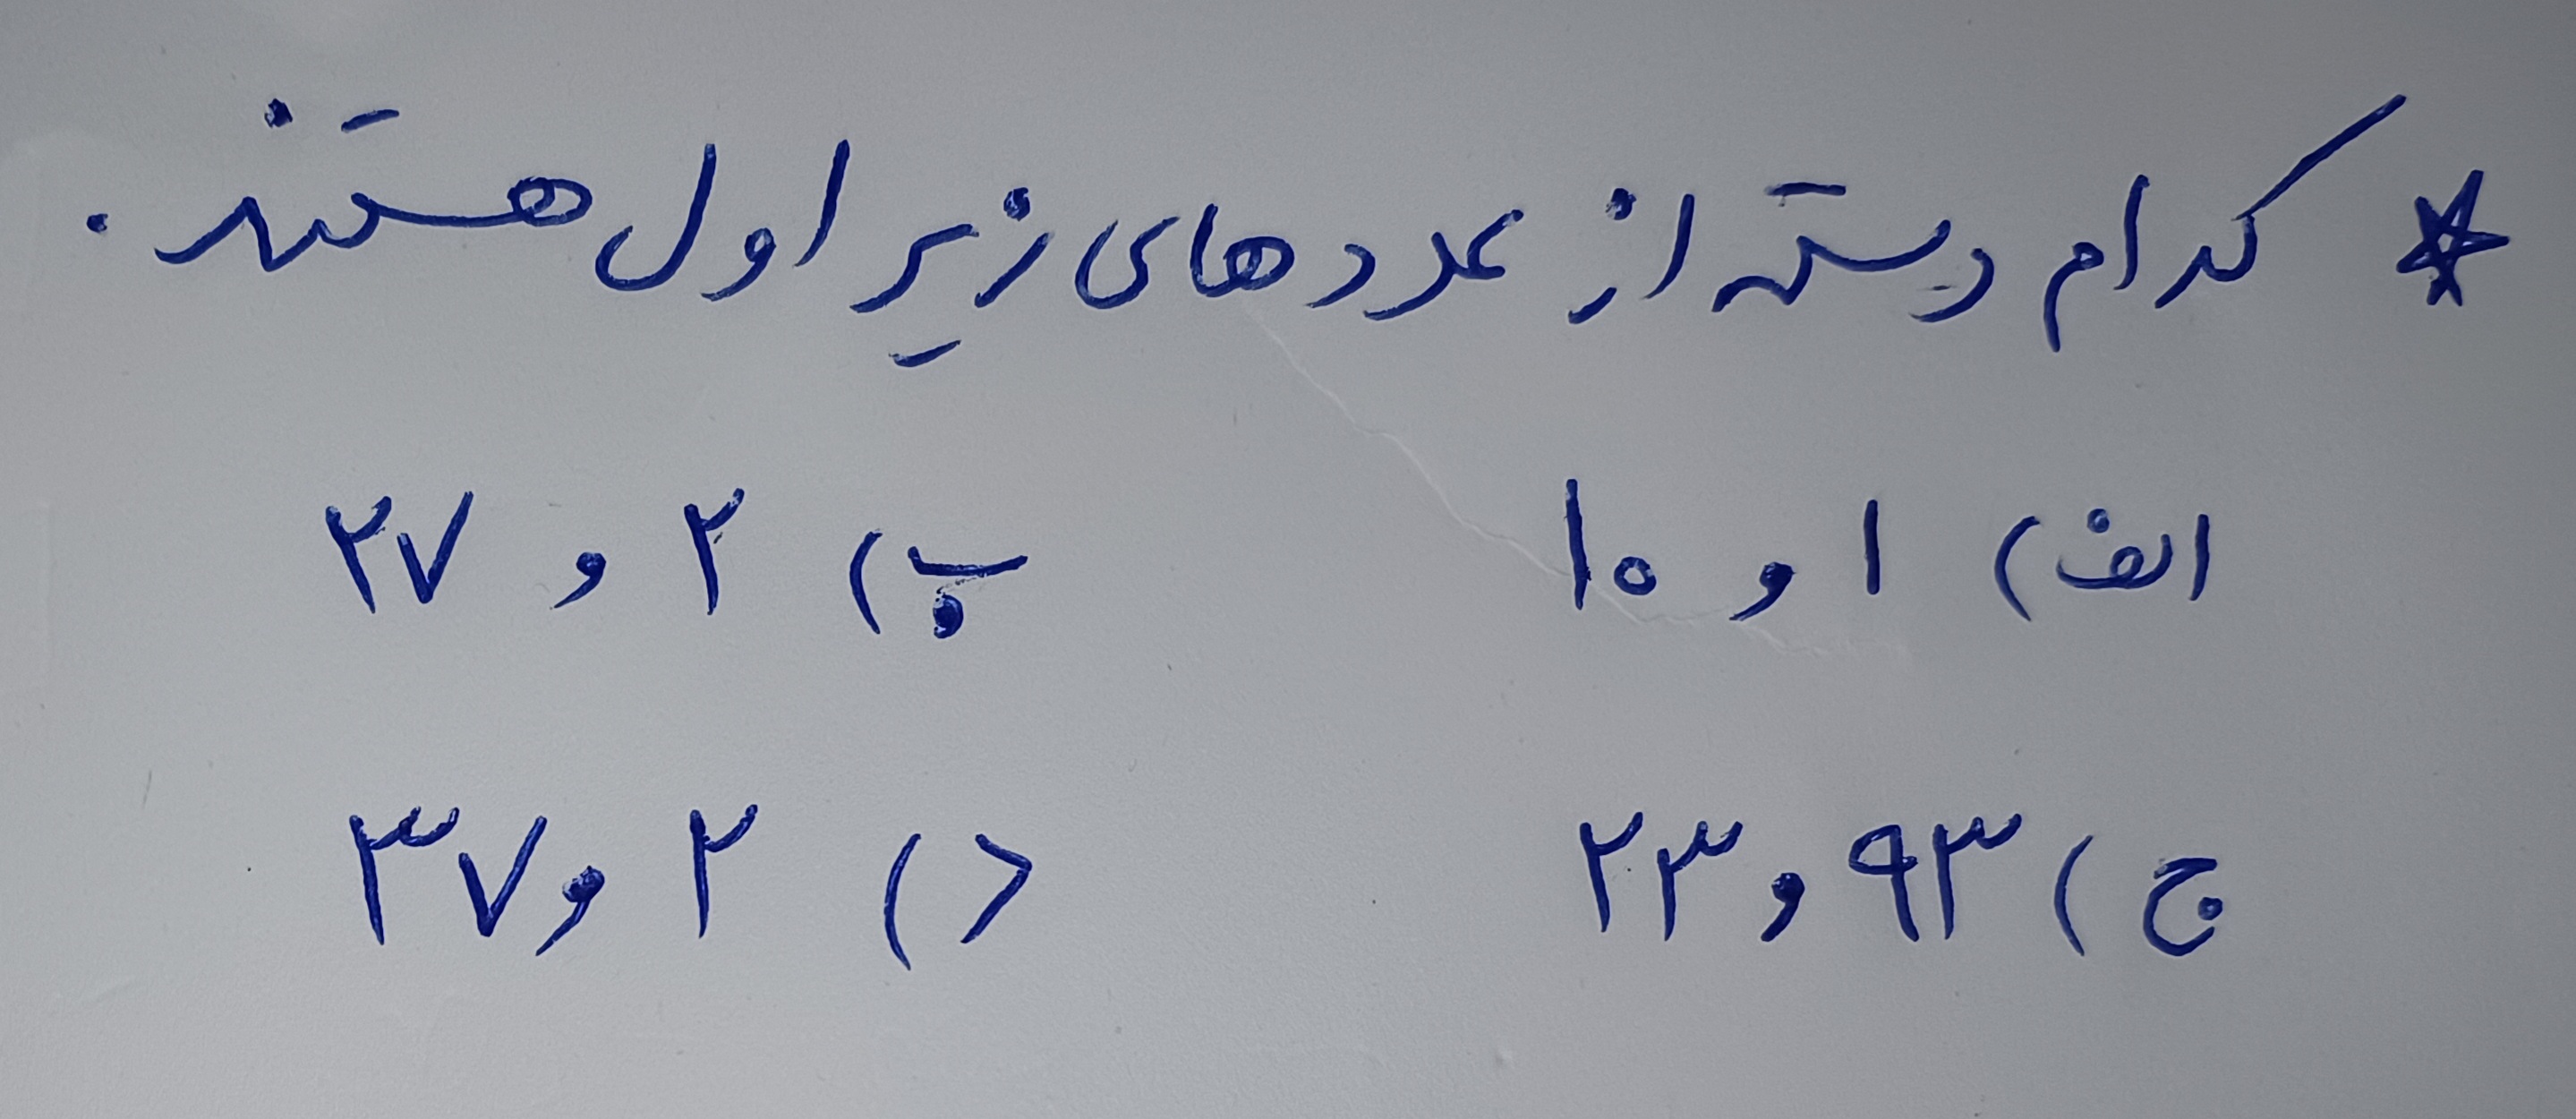 * کدام دسته از عددهای زیر اول هستند.
الف) ۱ و ۱۰ ب) ۲ و ۲۷
ج) ۹۳ و ۲۳ د) ۲ و ۳۷